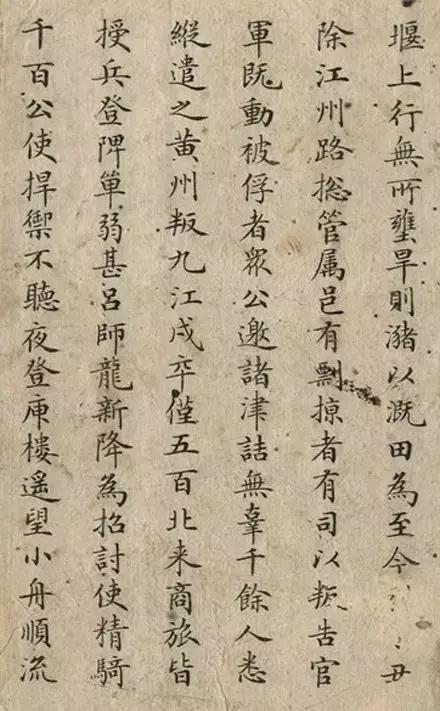 堰上行無所壅旱則瀦以溉田為至今丑
除江州路捴管属邑有剽掠者有司以叛告官
軍既動被俘者衆公邀諸津詰無辜千餘人悉
縱遣之黄州叛九江戍卒僅五百北来商旅皆
授兵登陴单弱甚吕師龍新降為招討使精騎
千百公使捍禦不聽夜登庾楼遥望小舟順流